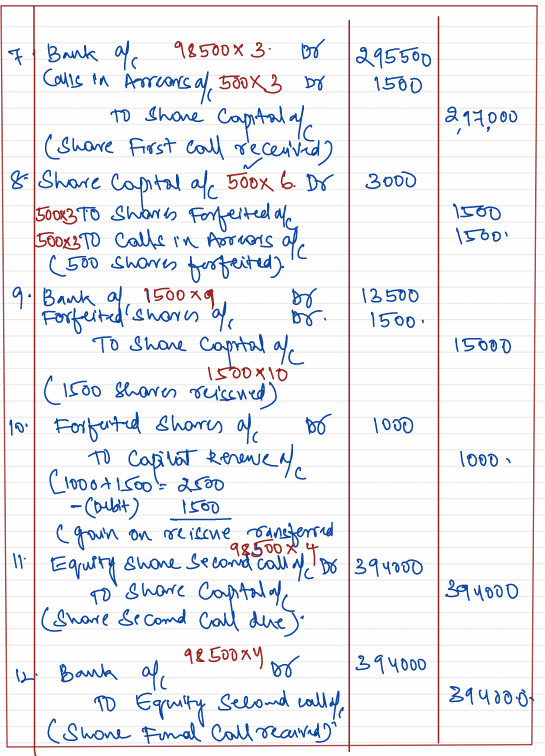 7. Bank a/c 98500 x 3. Dr 295500
Calls in Arrears a/c 500 x 3 Dr 1500
To Share Capital a/c 2,97,000
(Share First Call received)
8. Share Capital a/c 500 x 6 Dr 3000
500x3 TO Shares Forfeited a/c 1500
500x3 TO Calls in Arrears a/c 1500.
(500 shares forfeited).
9. Bank a/c 1500 x 9 Dr 13500
Forfeited Shares a/c Dr. 1500.
To Share Capital a/c 15000
1500 x 10
(1500 shares reissued)
10. Forfeited Shares a/c Dr 1000
To Capital Reserve a/c 1000.
(1000 + 1500 = 2500
-(Debit) 1500
(gain on reissue transferred
98500 x 4
11. Equity Share Second call a/c Dr 394000
TO Share Capital a/c 394000
(Share Second Call due).
12. Bank a/c 98500 x 4 Dr 394000
TO Equity Second call a/c 394000.
(Share Final Call received)